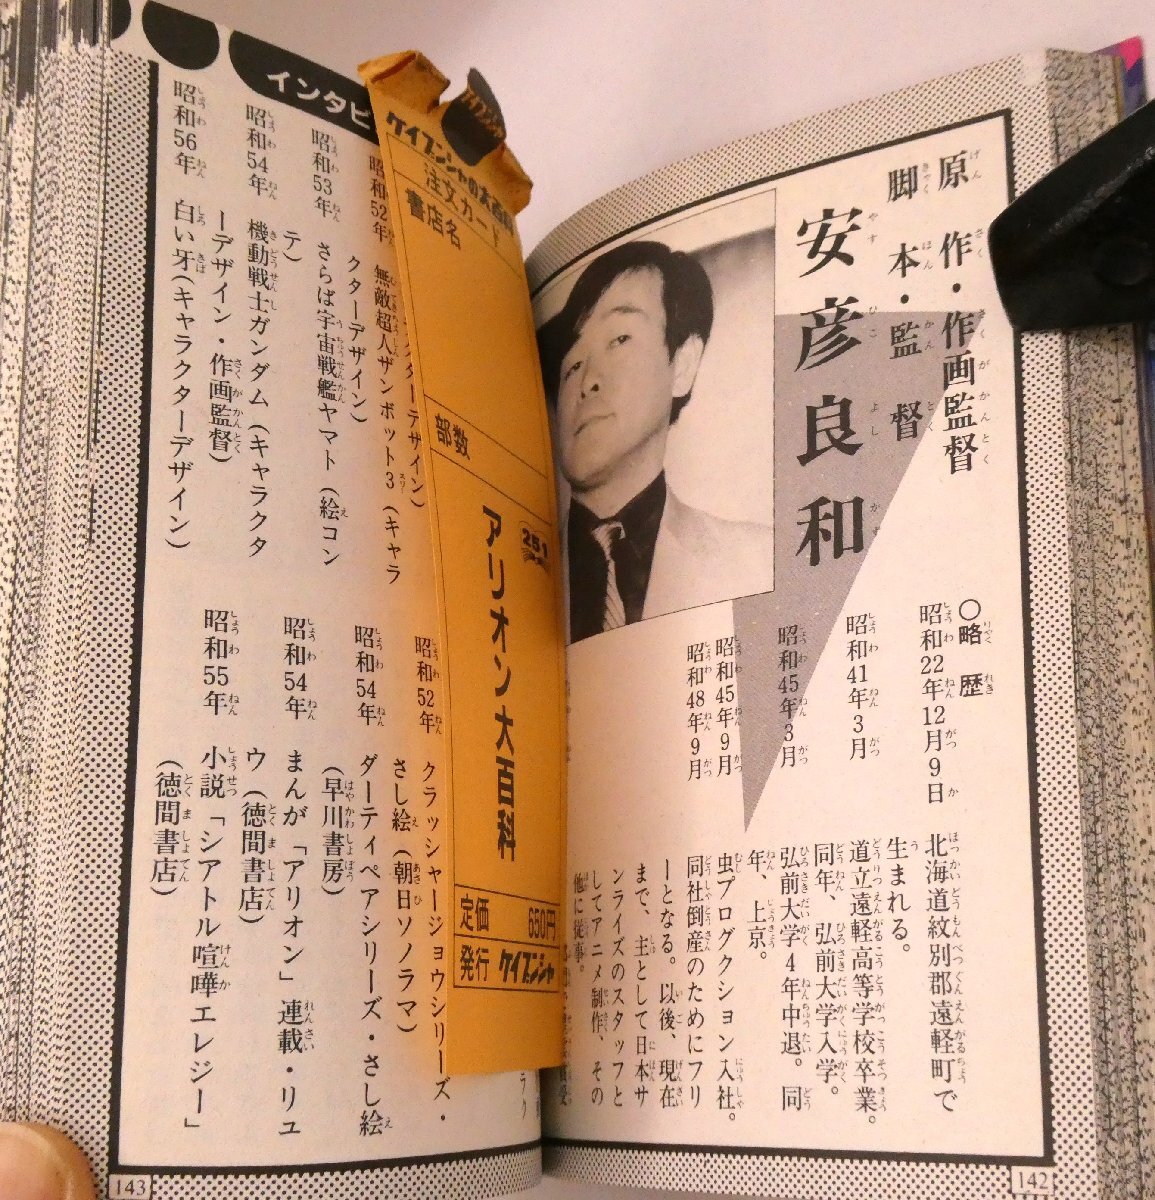 原作・作画監督
脚本・監督
安彦良和
やすひこよしかず
○略歴
昭和22年12月9日
北海道紋別郡遠軽町で
生まれる。
昭和41年3月
道立遠軽高等学校卒業。
同年、弘前大学入学。
昭和45年3月
弘前大学4年中退。同
年、上京。
昭和45年9月
虫プロダクション入社。
昭和48年9月
同社倒産のためにフリ
ーとなる。以後、現在
まで、主として日本サ
ンライズのスタッフと
してアニメ制作、その
他に従事。
142
インタビ
昭和52年
無敵超人ザンボット3（キャラ
クターデザイン）
昭和53年
さらば宇宙戦艦ヤマト（絵コン
テ）
昭和54年
機動戦士ガンダム（キャラクタ
ーデザイン・作画監督）
昭和56年
白い牙（キャラクターデザイン）
昭和52年
クラッシャージョウシリーズ・
さし絵（朝日ソノラマ）
昭和54年
ダーティペアシリーズ・さし絵
（早川書房）
昭和54年
まんが「アリオン」連載・リュ
ウ（徳間書店）
昭和55年
小説「シアトル喧嘩エレジー」
（徳間書店）
143
ケイブンシャの大百科
注文カード
書店名
部数
251
アリオン大百科
定価 650円
発行 ケイブンシャ